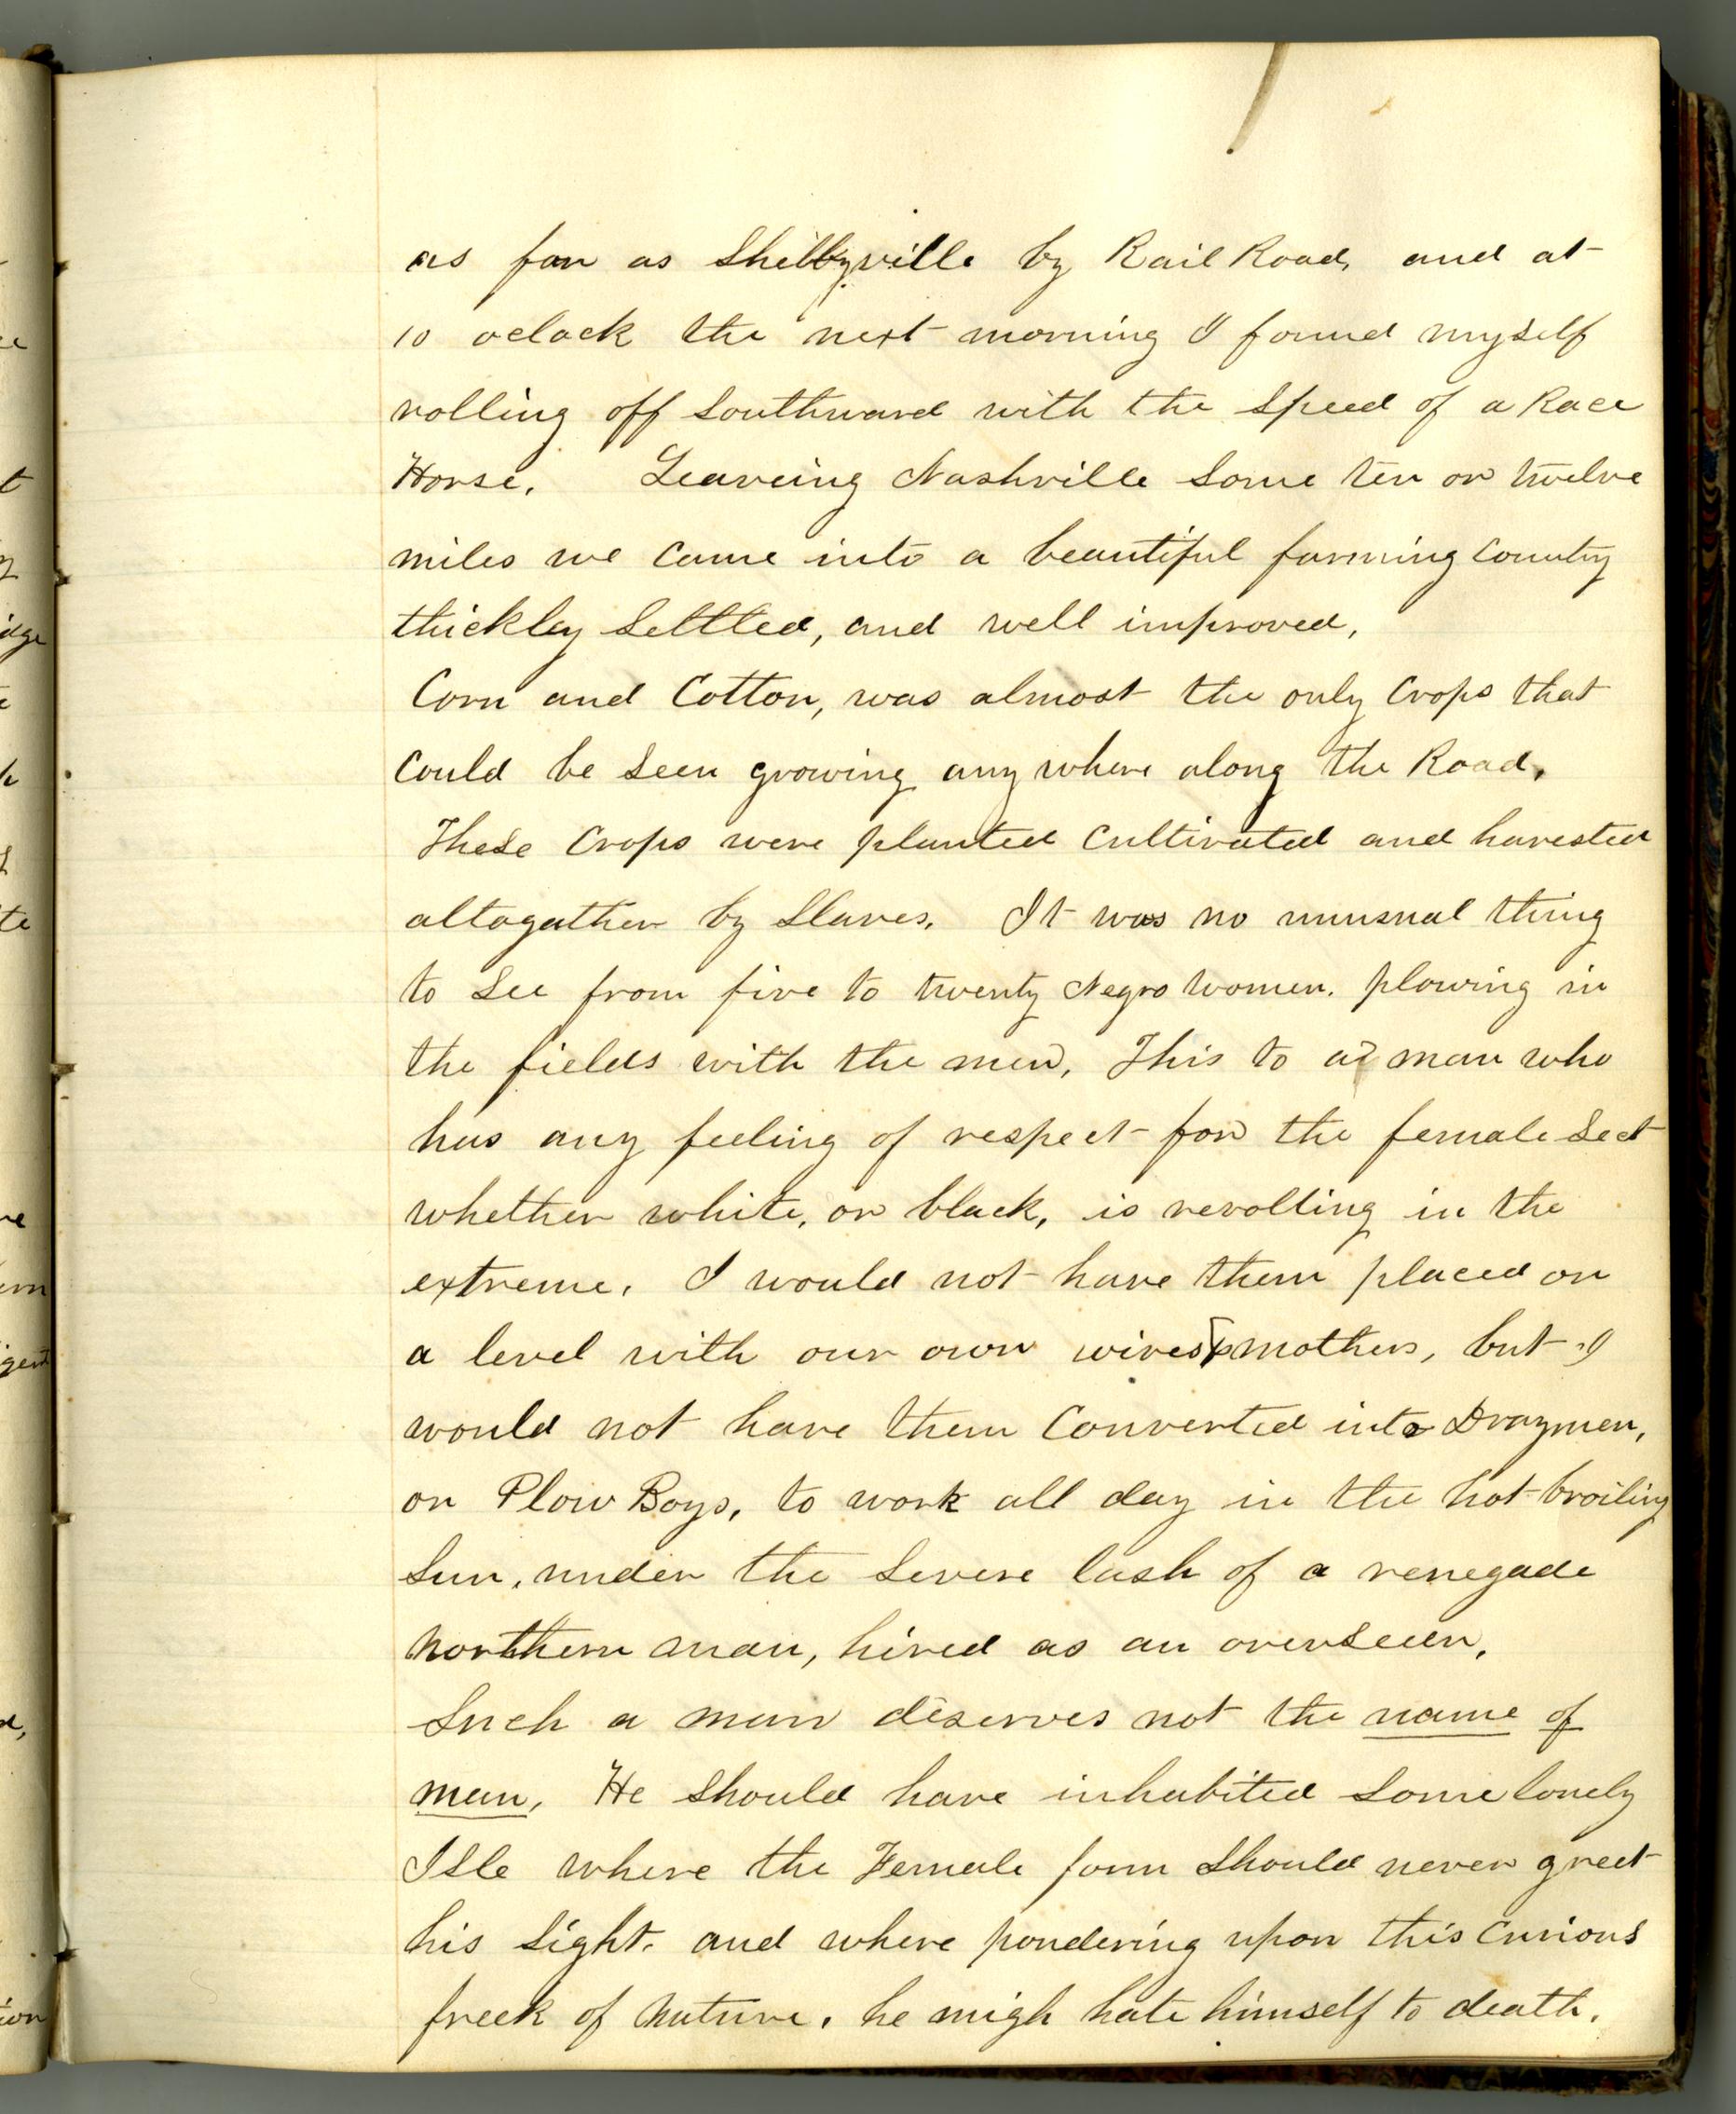 as far as Shelbyville by Rail Road, and at
10 oclock the next morning I found myself
rolling off southward with the speed of a Race
Horse. Leaveing Nashville some ten or twelve
miles we came into a beautiful farming country
thickley settled, and well improved.
Corn and Cotton, was almost the only crops that
could be seen growing any where along the Road.
These crops were planted cultivated and harested
altogather by Slaves. It was no unusual thing
to see from five to twenty Negro women. plowing in
the fields with the men. This to a man who
has any feeling of respect for the female sect
whether white, or black, is revolting in the
extreme. I would not have them placed on
a level with our own wives & mothers, but I
would not have them converted into Draymen,
or Plow Boys, to work all day in the hot broiling
sun, under the severe lash of a renegade
northern man, hired as an overseeer.
Such a man deserves not the name of
man. He should have inhabited some lonely
Isle where the Female form should never greet
his sight. and where pondering upon this curious
freek of nature. he migh hate himself to death.